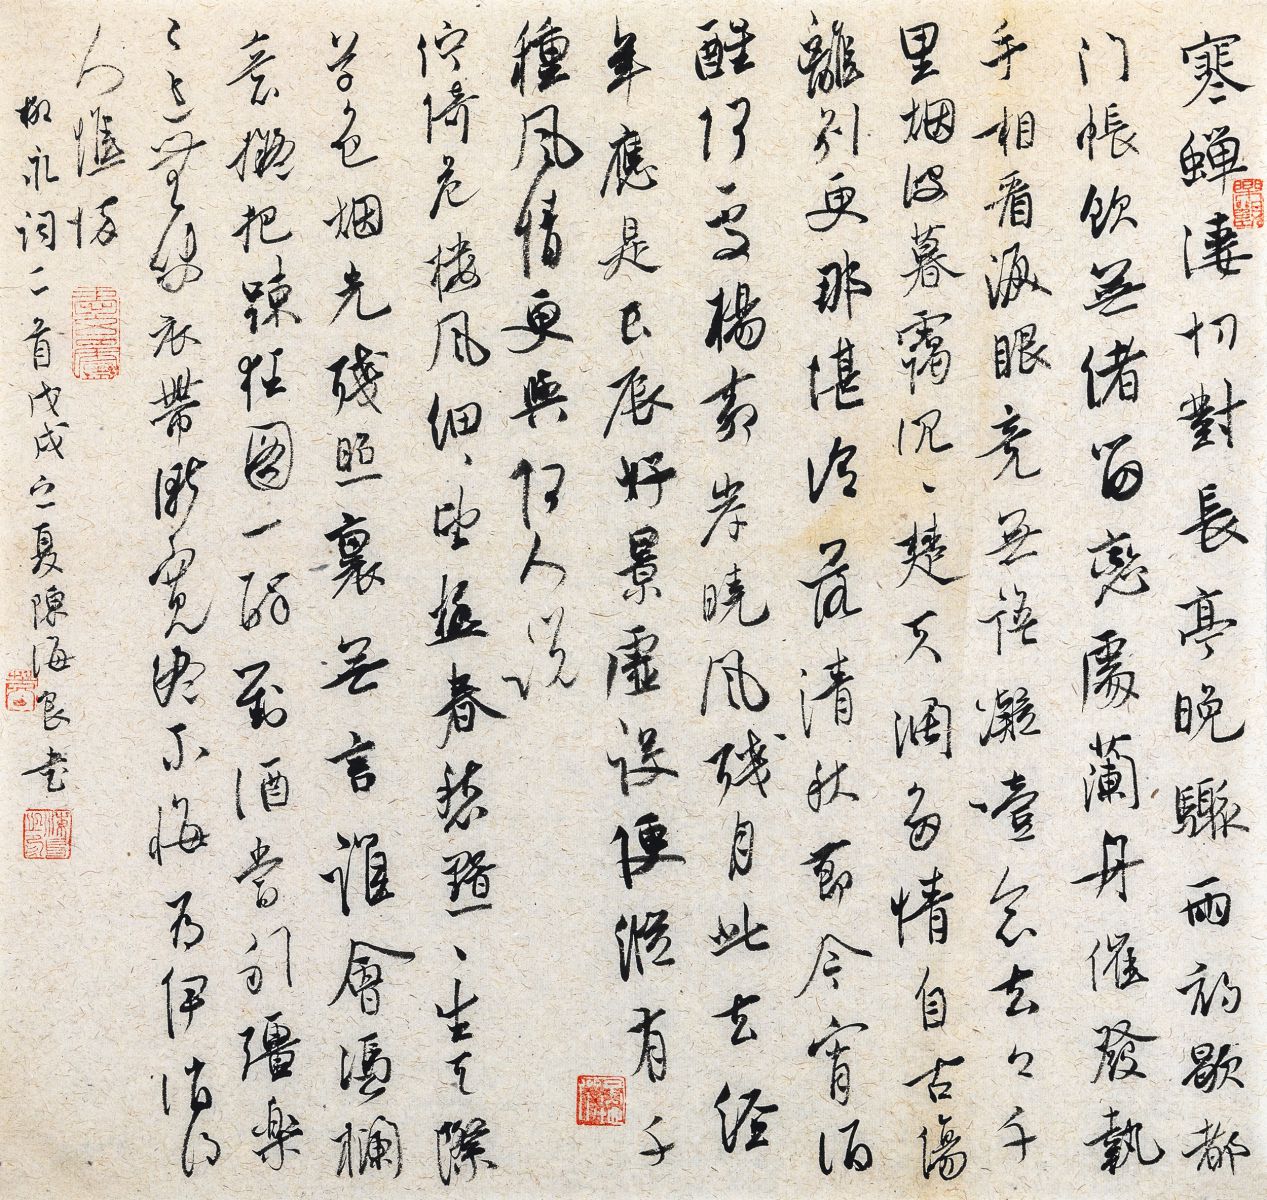 寒蝉淒切對長亭晚驟雨初歇都
门帳飲無绪留戀處蘭舟催發執
手相看淚眼竞無語凝噎念去々千
里烟波暮靄沉、楚天闊多情自古傷
離别更那堪冷落清秋節今宵酒
醒何处楊柳岸曉風残月此去经
年應是良辰好景虛设便縱有千
種風情更與何人说
佇倚危楼風细、望極春愁黯、生天際
草色烟光残照裏無言誰會憑欄
意擬把疎狂图一醉對酒當引彊樂
樂還無味衣帶漸寬终不悔为伊消得
人憔悴
柳永词二首戊戌之夏陳海良书